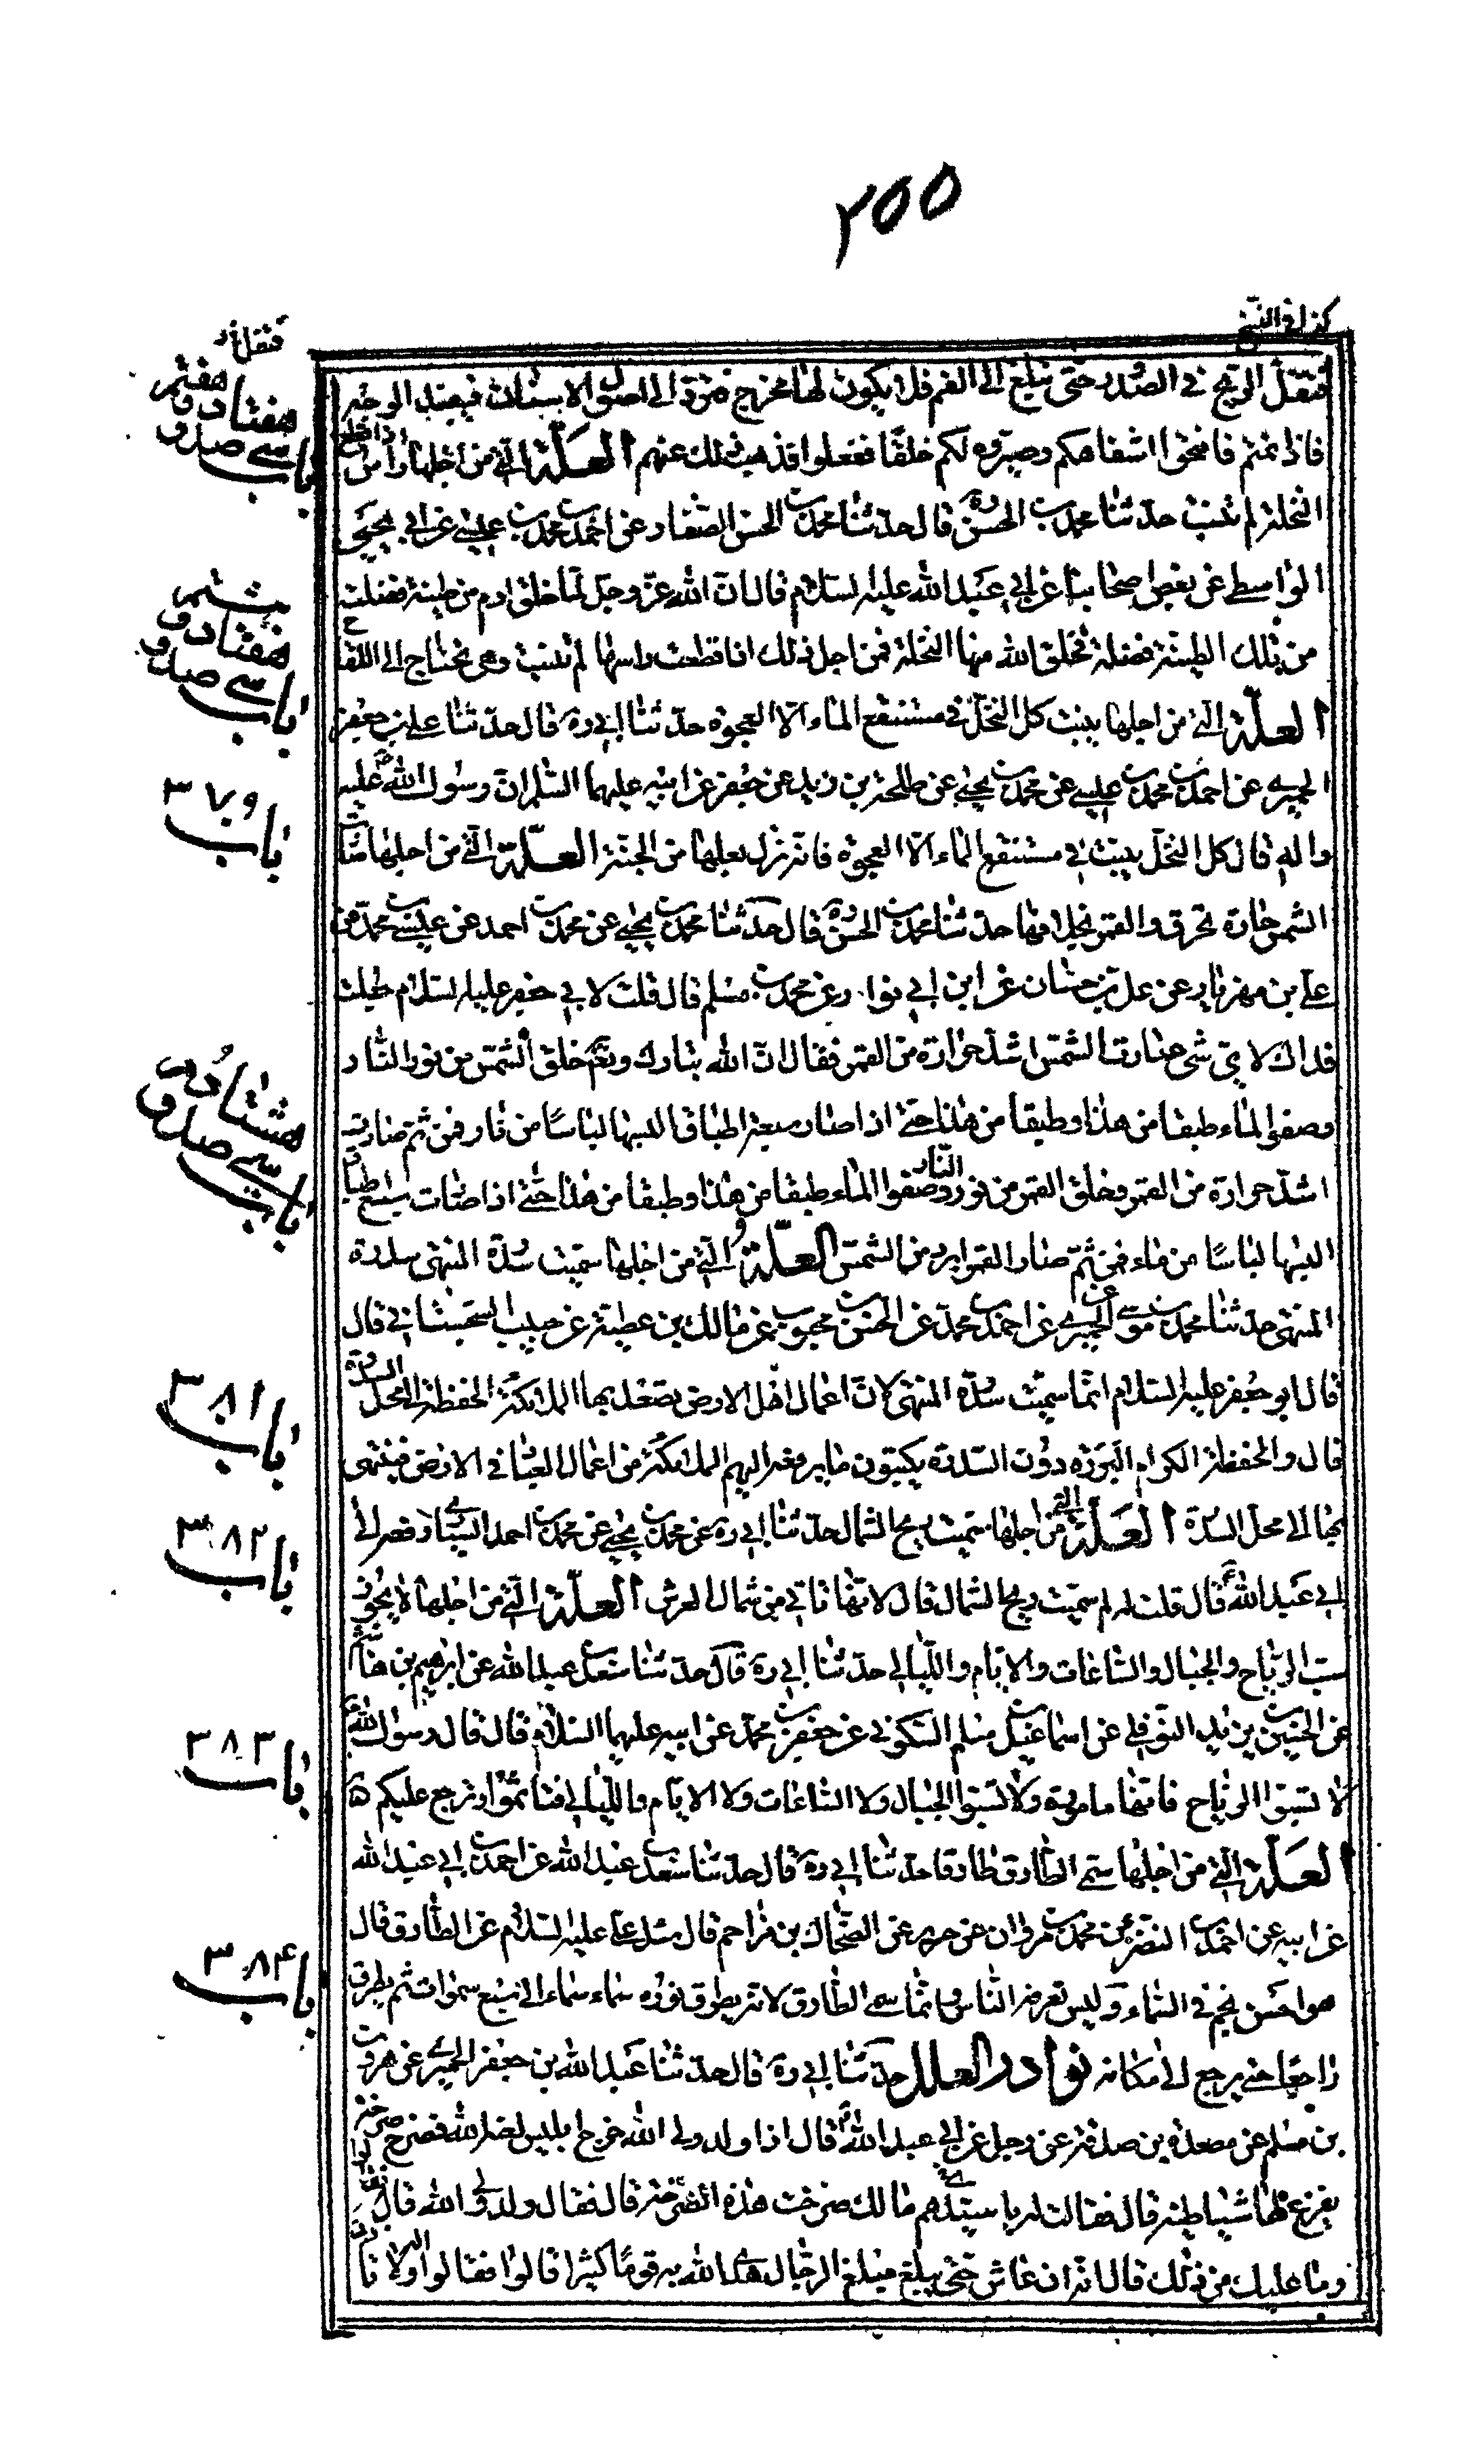 ٢٥٥
كذا في النسخ
فتغل الريح في الصدور حتى تبلغ الى الفم فلا يكون لها مخرج فترد الى اصول الاسنان فيفسد الوجه
فاذا نمتم فافتحوا اشفاهكم وصيروه لكم خلقا ففعلوا فذهب ذلك عنهم العلة التي من اجلها اذا قطع راس
النخلة لم تنبت حدثنا محمد بن الحسن ره قال حدثنا محمد بن الحسن الصفار عن احمد بن محمد بن عيسى عن ابي يحيى
الواسطي عن بعض اصحابنا عن ابي عبد الله عليه السلام قال ان الله عز وجل لما خلق ادم من طينة فضلت
من تلك الطينة فضلة فخلق الله منها النخلة فمن اجل ذلك اذا قطعت راسها لم تنبت وهي تحتاج الى اللقاح
العلة التي من اجلها ينبت كل النخل في مستنقع الماء الا العجوة حدثنا ابي ره قال حدثنا علي بن جعفر
الحميري عن احمد بن محمد بن عيسى عن محمد بن يحيى عن طلحة بن زيد عن جعفر عن ابيه عليهما السلم ان رسول الله ص عليه
واله قال كل النخل ينبت في مستنقع الماء الا العجوة فانه نزل بعلها من الجنة العلة التي من اجلها صارت
الشمس حارة تحرق والقمر بخلافها حدثنا محمد بن الحسن ره قال حدثنا محمد بن يحيى عن محمد بن احمد عن عيسى بن محمد عن
علي بن مهزيار عن علي بن حسان عن ابن ابي نوار عن محمد بن مسلم قال قلت لابي جعفر عليه السلام جعلت
فداك لاي شي صارت الشمس اشد حرارة من القمر فقال ان الله تبارك وتعم خلق الشمس من نور النار
وصفو الماء طبقا من هذا وطبقا من هذا حتى اذا صارت سبعة اطباق البسها لباسا من نار فمن ثم صارت
اشد حرارة من القمر وخلق القمر من نور النار وصفو الماء طبقا من هذا وطبقا من هذا حتى اذا صارت سبع طباق
البسها لباسا من ماء فمن ثم صار القمر ابرد من الشمس العلة التي من اجلها سميت سدرة المنتهى سدرة
المنتهى حدثنا محمد بن موسى عن الحميري عن احمد بن محمد عن الحسن بن محبوب عن مالك بن عطية عن حبيب السجستاني قال
قال ابو جعفر عليه السلام انما سميت سدرة المنتهى لان اعمال اهل الارض تصعد بها الملائكة الحفظة الى محل السدرة
قال والحفظة الكرام البررة دون السدرة يكتبون ما يرفعه اليهم الملائكة من اعمال العباد في الارض فينتهى
بها الى محل السدرة العلة التي من اجلها سميت ريح الشمال حدثنا ابي ره عن محمد بن يحيى عن محمد بن احمد السياري رفعه الى
ابي عبد الله ع قال قلت له لم سميت ريح الشمال قال لانها تاتي من شمال العرش العلة التي من اجلها لا يجوز
سب الرياح والجبال والساعات والايام والليالي حدثنا ابي ره قال حدثنا سعد بن عبد الله عن ابرهيم بن هاشم
عن الحسين بن يزيد النوفلي عن اسماعيل بن مسلم السكوني عن جعفر بن محمد عن ابيه عليهما السلام قال قال رسول الله
لا تسبوا الرياح فانها مامورة ولا تسبوا الجبال ولا الساعات ولا الايام والليالي فتاثموا وترجع عليكم
العلة التي من اجلها سمي الطارق طارقا حدثنا ابي ره قال حدثنا سعد بن عبد الله عن احمد بن ابي عبد الله
عن ابيه عن احمد بن النضر عن محمد بن مروان عن حريز عن الضحاك بن مزاحم قال سئل علي عليه السلام عن الطارق قال
هو احسن نجم في السماء وليس تعرفه الناس وانما سمي الطارق لانه يطرق نوره سماء سماء الى سبع سموات ثم يطرق
راجعا حتى يرجع الى مكانه نوادر العلل حدثنا ابي ره قال حدثنا عبد الله بن جعفر الحميري عن هرون
بن مسلم عن مسعدة بن صدقة عن رجل عن ابي عبد الله قال اذا ولد ولي الله خرج ابليس لعنه الله فصرخ صرخة
يفزع لها شياطينه قال فقالت له يا سيدهم مالك صرخت هذه الصرخة قال فقال ولد ولي الله قال فقالوا
وما عليك من ذلك قال انه ان عاش حتى يبلغ مبلغ الرجال هدى الله به قوما كثيرا قالوا فقالوا له اولا تا
فتغل
باب سي صد و هفتاد و هفتم
باب سي صد و هفتاد و هشتم
باب ٣٧٩
باب سي صد و هشتاد
باب ٣٨١
باب ٣٨٢
باب ٣٨٣
باب ٣٨۴